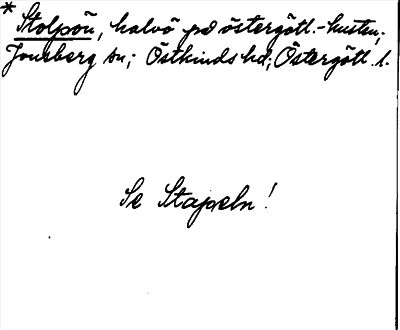 * Stolpön, halvö på östergötl.-kusten;
Jonsberg sn; Östkinds hd; Östergötl. l.
Se Stapeln!